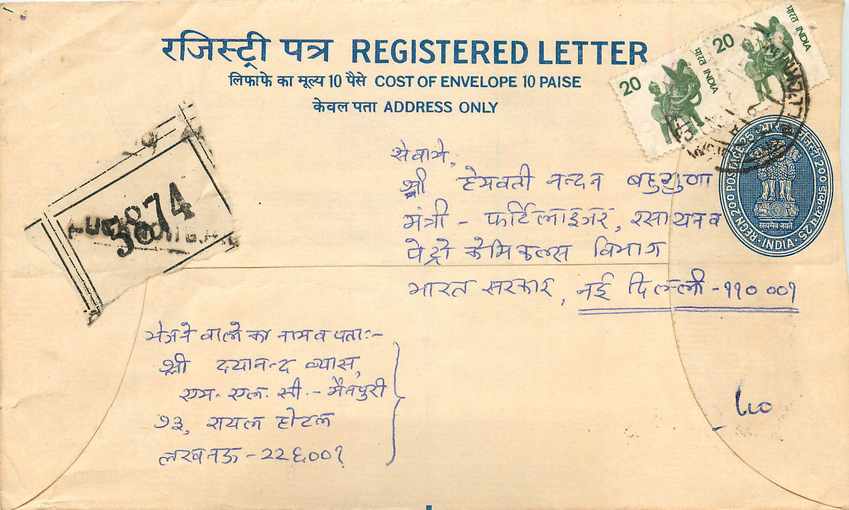 रजिस्ट्री पत्र REGISTERED LETTER
लिफाफे का मूल्य 10 पैसे COST OF ENVELOPE 10 PAISE
केवल पता ADDRESS ONLY
20 भारत INDIA
20 भारत INDIA
REGN 200 POSTAGE 25 भारत रजि. 200 डाक-व्यय 25
सत्यमेव जयते
INDIA
3874
सेवामे,
श्री हेमवती नन्दन बहुगुणा
मंत्री - फर्टिलाइजर, रसायन व
पेट्रो केमिकल्स विभाग
भारत सरकार, नई दिल्ली - ११० ००१
भेजने वाले का नाम व पता:-
श्री दयानन्द व्यास,
एम. एल. सी. - मैनपुरी
७३, रायल होटल
लखनऊ - २२६००१